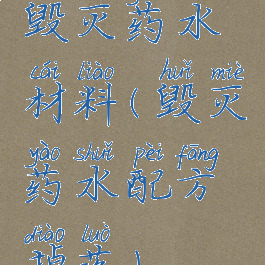 毁灭药水
cái liào huǐ miè
材料(毁灭
yào shuǐ pèi fāng
药水配方
diào luò
掉落)